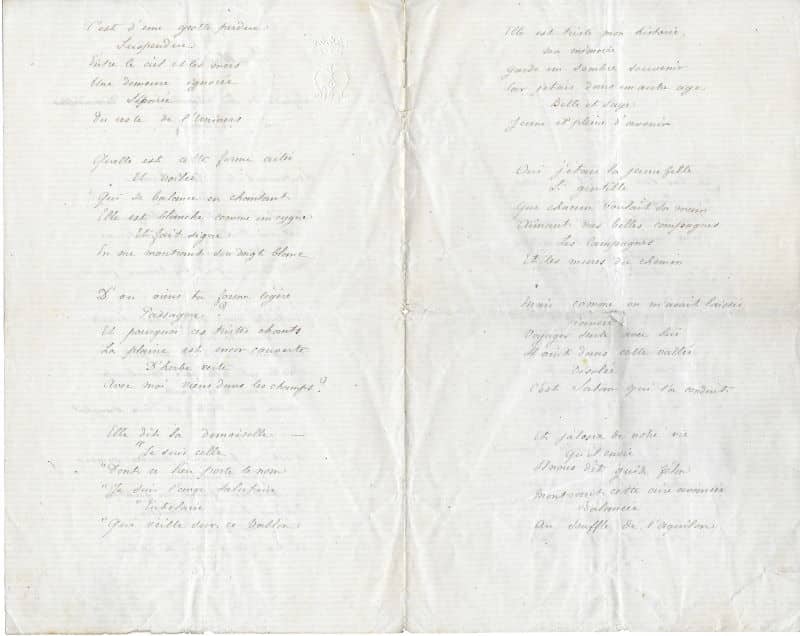 C'est d'une grotte perdue
Suspendue
Entre le ciel et les mers
Une demeure ignorée
Séparée
Du reste de l'Univers
Quelle est cette forme ailée
Et voilée
Qui se balance en chantant
Elle est blanche comme un cygne
Et fait signe
En me montrant son doigt blanc
D'ou viens tu forme légère
Passagère ?
Et pourquoi ces tristes chants
La plaine est encor couverte
D'herbe verte
Avec moi viens dans les champs ?
Elle dit la demoiselle —
"Je suis celle
"Dont ce lieu porte le nom
"Je suis l'ange
"Tutelaire
"Qui veille sur ce vallon
Elle est triste mon histoire,
Ma mémoire
Garde un sombre souvenir
Car j'étais dans un autre age
Belle et sage
Jeune et pleine d'avenir
Oui j'étais la jeune fille
Si gentille
Que chacun voulait sa main
Aimant nos belles campagnes
Les campagnes
Et les mures du chemin
Mais comme on m'avait laissée
Voyager seule avec lui
Il vint dans cette vallée
Isolée
C'est Satan qui l'a conduit
Et jaloux de notre vie
Qu'il envie
Il nous dit
Montrant cette
Balancée
Au souffle de l'aquilon